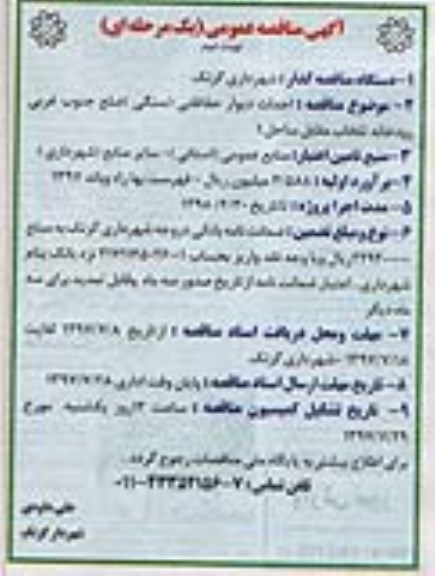 آگهی مناقصه عمومی (یک مرحله ای)
نوبت دوم
۱- دستگاه مناقصه گذار : شهرداری گزنک
۲- موضوع مناقصه : احداث دیوار حفاظتی (سنگی) ضلع جنوب غربی
رودخانه
۳- منبع تامین اعتبار: منابع عمومی (استانی) - سایر منابع (شهرداری)
۴- برآورد اولیه : میلیون ریال - فهرست بها راه وباند ۱۳۹۷
۵- مدت اجرا پروژه: تا تاریخ
۶- نوع و مبلغ تضمین: ضمانت نامه بانکی در وجه شهرداری گزنک به مبلغ
ریال ویا وجه نقد واریز بحساب نزد بانک بنام
شهرداری. اعتبار ضمانت نامه از تاریخ صدور سه ماه وقابل تمدید برای سه
ماه دیگر
۷- مهلت ومحل دریافت اسناد مناقصه : از تاریخ ۱۳۹۷/۷/۸ لغایت
۱۳۹۷/۷/۱۸ - شهرداری گزنک
۸- تاریخ مهلت ارسال اسناد مناقصه : پایان وقت اداری ۱۳۹۷/۷/۲۸
۹- تاریخ تشکیل کمیسیون مناقصه : ساعت روز یکشنبه مورخ
۱۳۹۷/۷/۲۹
برای اطلاع بیشتر به پایگاه ملی مناقصات رجوع گردد.
تلفن تماس: ۷-۴۳۳۵۲۱۵۶-۰۱۱
شهردار گزنک